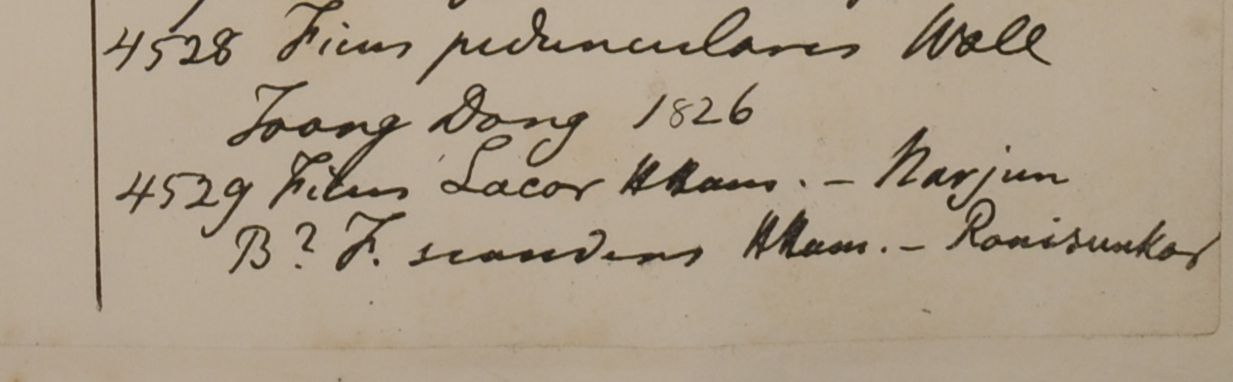 4528 Ficus peduncularis Wall
Toong Dong 1826
4529 Ficus Lacor HHam. – Narjun
B? F. scandens HHam. – Ronisunkor